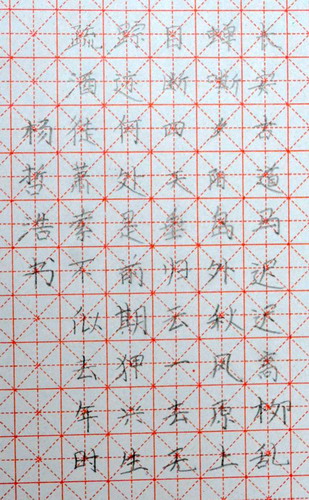 长安古道马迟迟高柳乱
蝉嘶夕阳岛外秋风原上
目断四天垂归云一去无
踪迹何处是前期狎兴生
疏酒徒萧索不似去年时
杨哲浩书